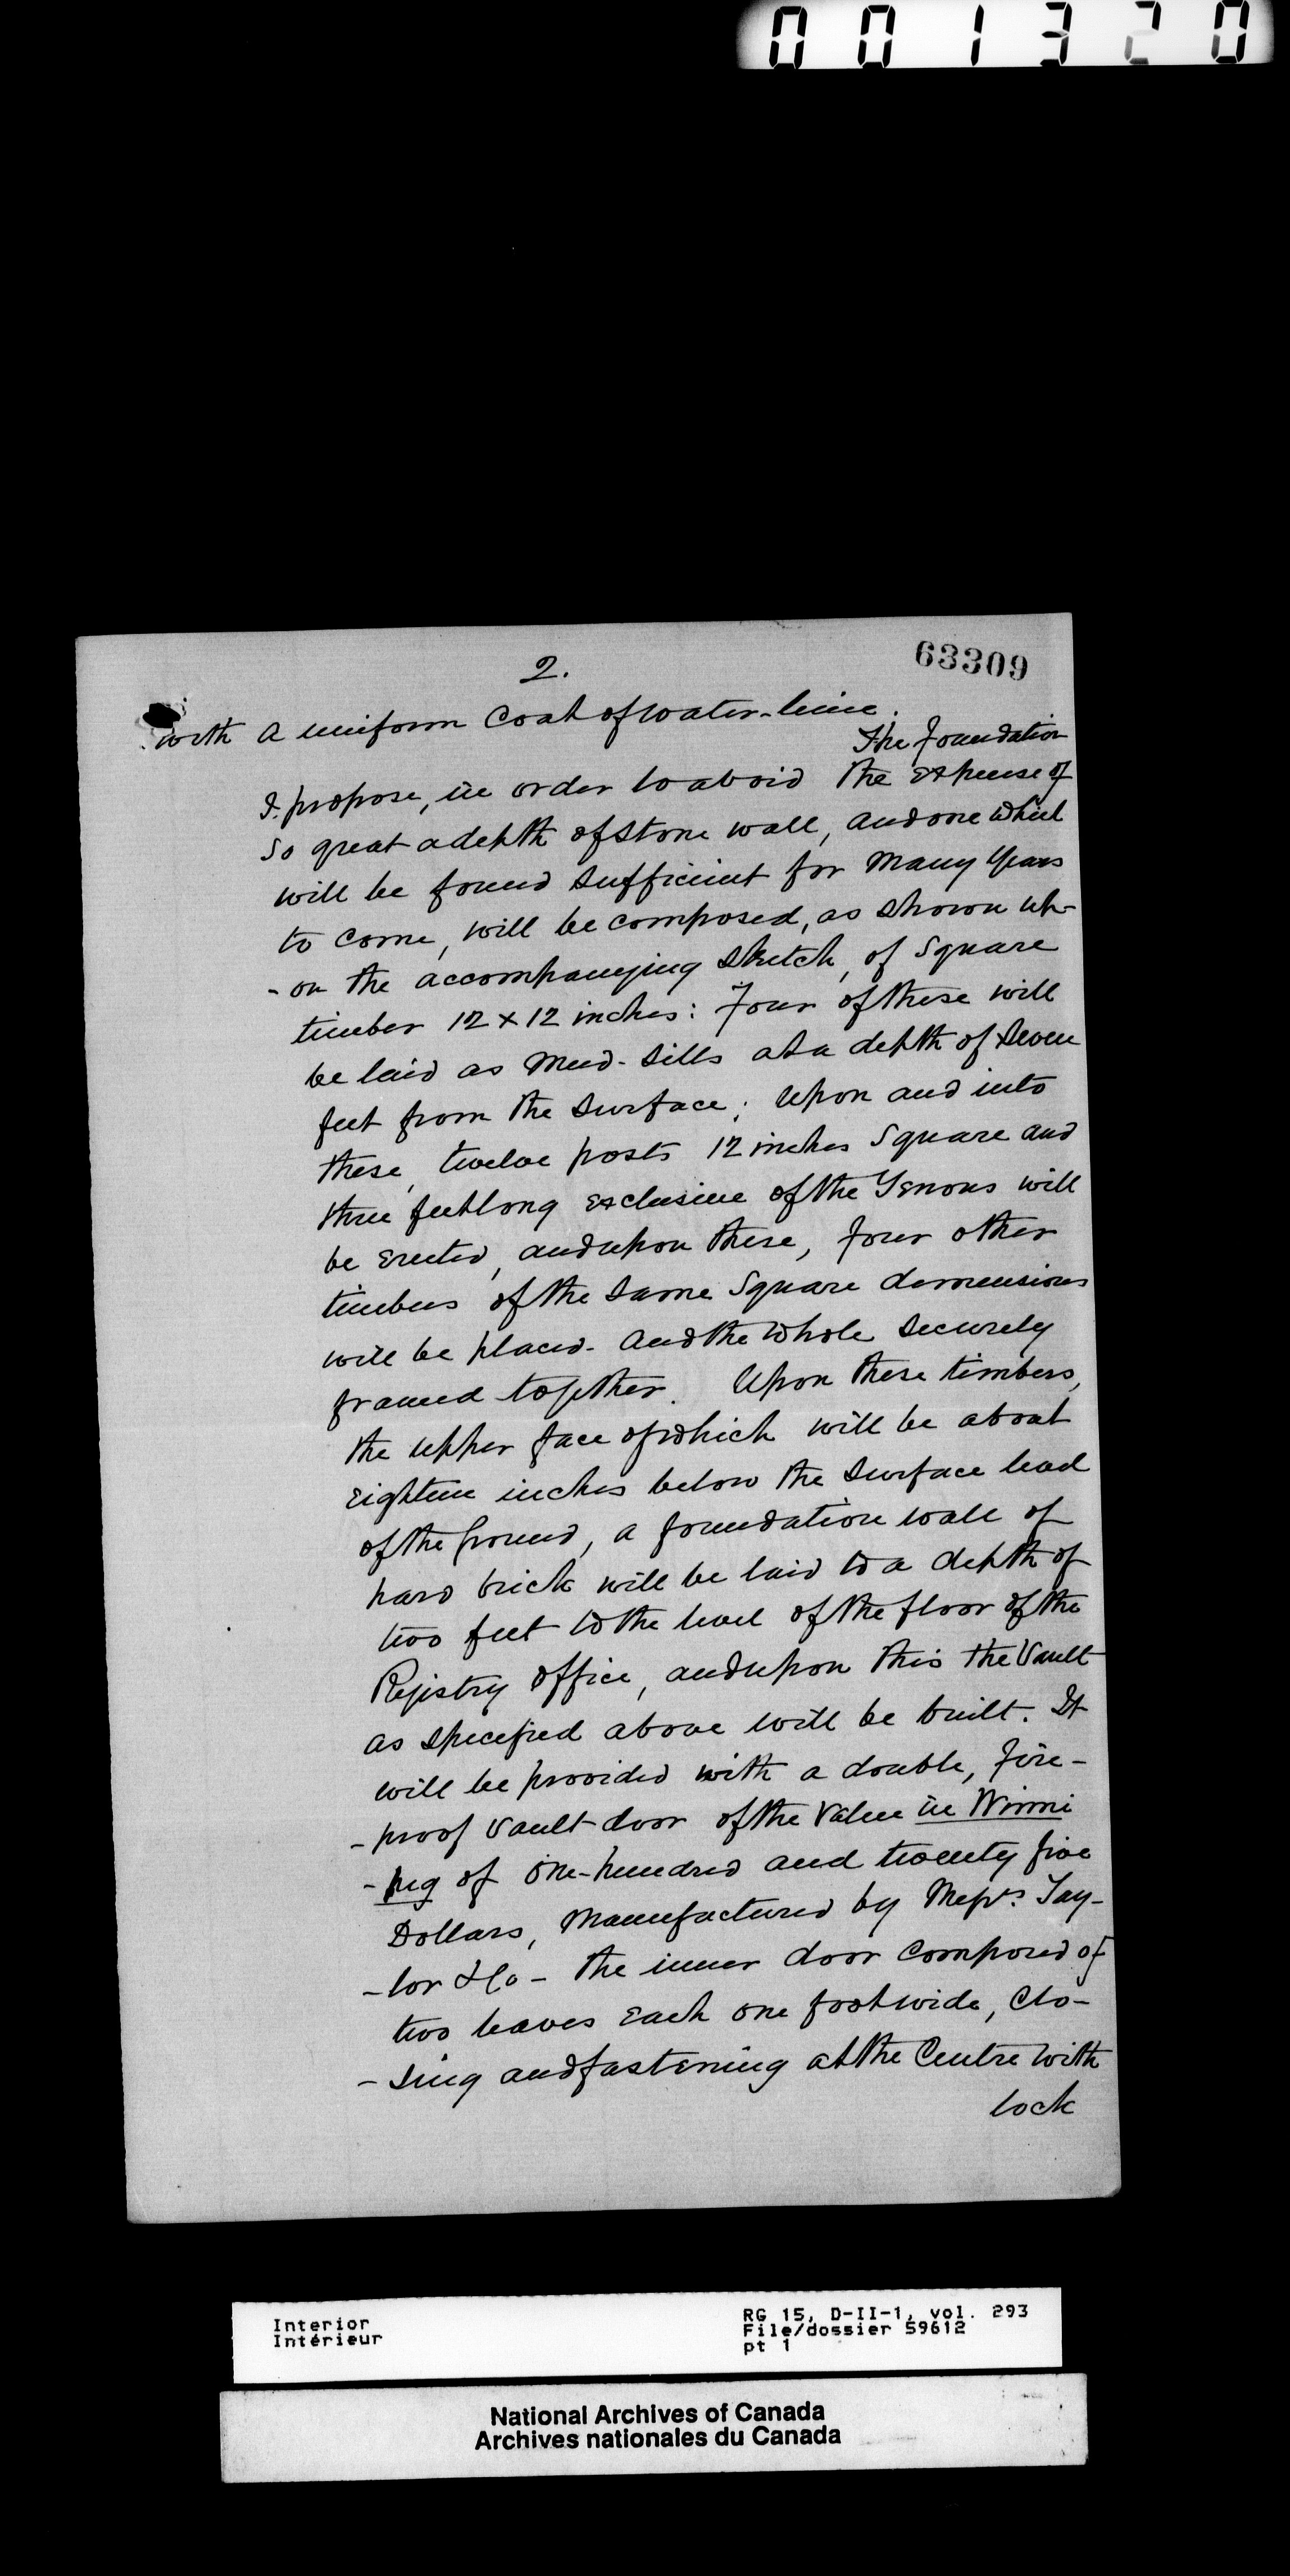 001320
63309
2.
with a uniform Coat of water-lime.
The Foundation
I propose, in order to avoid the Expense of
so great a depth of stone wall, and one which
will be found sufficient for Many Years
to come, will be composed, as shown up-
-on the accompanying sketch, of square
timber 12 x 12 inches: Four of these will
be laid as Mud-sills at a depth of seven
feet from the surface; Upon and into
these, twelve posts 12 inches square and
three feet long Exclusive of the Tenons will
be Erected, and upon these, four other
timbers of the same square dimensions
will be placed - and the whole securely
framed together. Upon these timbers,
the upper face of which will be about
Eighteen inches below the surface level
of the Ground, a foundation wall of
hard brick will be laid to a depth of
two feet to the level of the floor of the
Registry Office, and upon this the Vault
as specified above will be built. It
will be provided with a double, Fire-
-proof Vault-door of the Value in Winni
-peg of One-hundred and twenty five
Dollars, Manufactured by Messrs. Tay-
-lor & Co - the inner door Composed of
two leaves Each one foot wide, Clo-
-sing and fastening at the Centre with
lock
Interior
Intérieur
RG 15, D-II-1, vol. 293
File/dossier 59612
pt 1
National Archives of Canada
Archives nationales du Canada